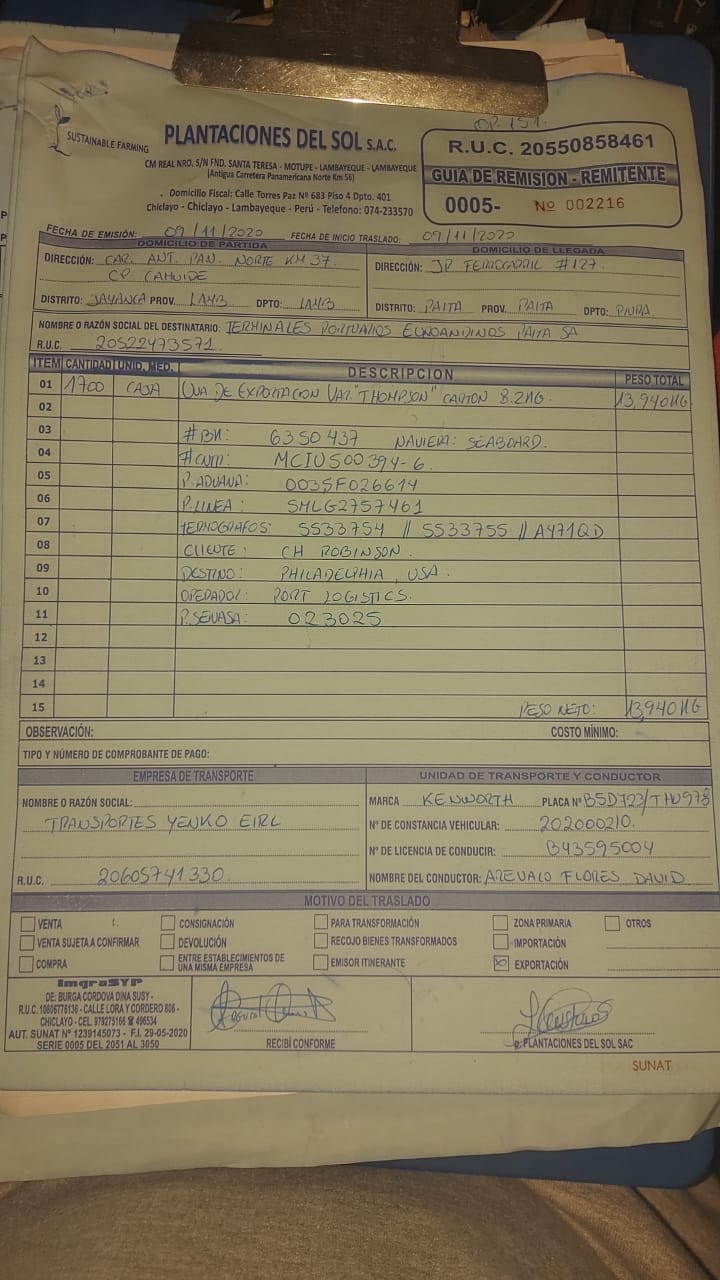 OP. 151.
SUSTAINABLE FARMING
PLANTACIONES DEL SOL S.A.C.
CM REAL NRO. S/N FND. SANTA TERESA - MOTUPE - LAMBAYEQUE - LAMBAYEQUE
(Antigua Carretera Panamericana Norte Km 56)
Domicilio Fiscal: Calle Torres Paz Nº 683 Piso 4 Dpto. 401
Chiclayo - Chiclayo - Lambayeque - Perú - Telefono: 074-233570
R.U.C. 20550858461
GUIA DE REMISION - REMITENTE
0005- Nº 002216
FECHA DE EMISIÓN: 09/11/2020 FECHA DE INICIO TRASLADO: 09/11/2020
DOMICILIO DE PARTIDA DOMICILIO DE LLEGADA
DIRECCIÓN: CAR. ANT. PAN. NORTE KM 37. DIRECCIÓN: JR. FERROCARRIL #127.
CP. CAHUIDE
DISTRITO: JAYANCA PROV. LAMB DPTO: LAMB DISTRITO: PAITA PROV. PAITA DPTO: PIURA
NOMBRE O RAZÓN SOCIAL DEL DESTINATARIO: TERMINALES PORTUARIOS EUROANDINOS PAITA SA
R.U.C. 20522473571
ITEM CANTIDAD UNID. MED. DESCRIPCION PESO TOTAL
01 1700 CAJA UVA DE EXPORTACION VAR. "THOMPSON" CARTON 8.2KG. 13,940KG
02
03 #BK: 6350437 NAVIERA: SEABOARD.
04 #CNTR: MCIU500394-6.
05 P.ADUANA: 003SF026614
06 P.LINEA: SMLG2757461
07 TERMOGRAFOS: SS33754 // SS33755 // A471QD
08 CLIENTE: CH ROBINSON.
09 DESTINO: PHILADELPHIA, USA.
10 OPERADOR: PORT LOGISTICS.
11 P.SENASA: 023025
12
13
14
15 PESO NETO: 13,940KG
OBSERVACIÓN: COSTO MÍNIMO:
TIPO Y NÚMERO DE COMPROBANTE DE PAGO:
EMPRESA DE TRANSPORTE UNIDAD DE TRANSPORTE Y CONDUCTOR
NOMBRE O RAZÓN SOCIAL: MARCA KENWORTH PLACA Nº B5D723/THU978
TRANSPORTES YENKO EIRL Nº DE CONSTANCIA VEHICULAR: 202000210.
Nº DE LICENCIA DE CONDUCIR: B43595004
R.U.C. 20605741330. NOMBRE DEL CONDUCTOR: AREVALO FLORES DAVID
MOTIVO DEL TRASLADO
VENTA CONSIGNACIÓN PARA TRANSFORMACIÓN ZONA PRIMARIA OTROS
VENTA SUJETA A CONFIRMAR DEVOLUCIÓN RECOJO BIENES TRANSFORMADOS IMPORTACIÓN
COMPRA ENTRE ESTABLECIMIENTOS DE UNA MISMA EMPRESA EMISOR ITINERANTE EXPORTACIÓN
ImgraSYP
DE: BURGA CORDOVA DINA SUSY -
R.U.C. 10806776136 - CALLE LORA Y CORDERO 806 -
CHICLAYO - CEL. 979275166 ☎ 496534
AUT. SUNAT Nº 1239145073 - F.I. 29-05-2020
SERIE 0005 DEL 2051 AL 3050
RECIBÍ CONFORME
p. PLANTACIONES DEL SOL SAC
SUNAT